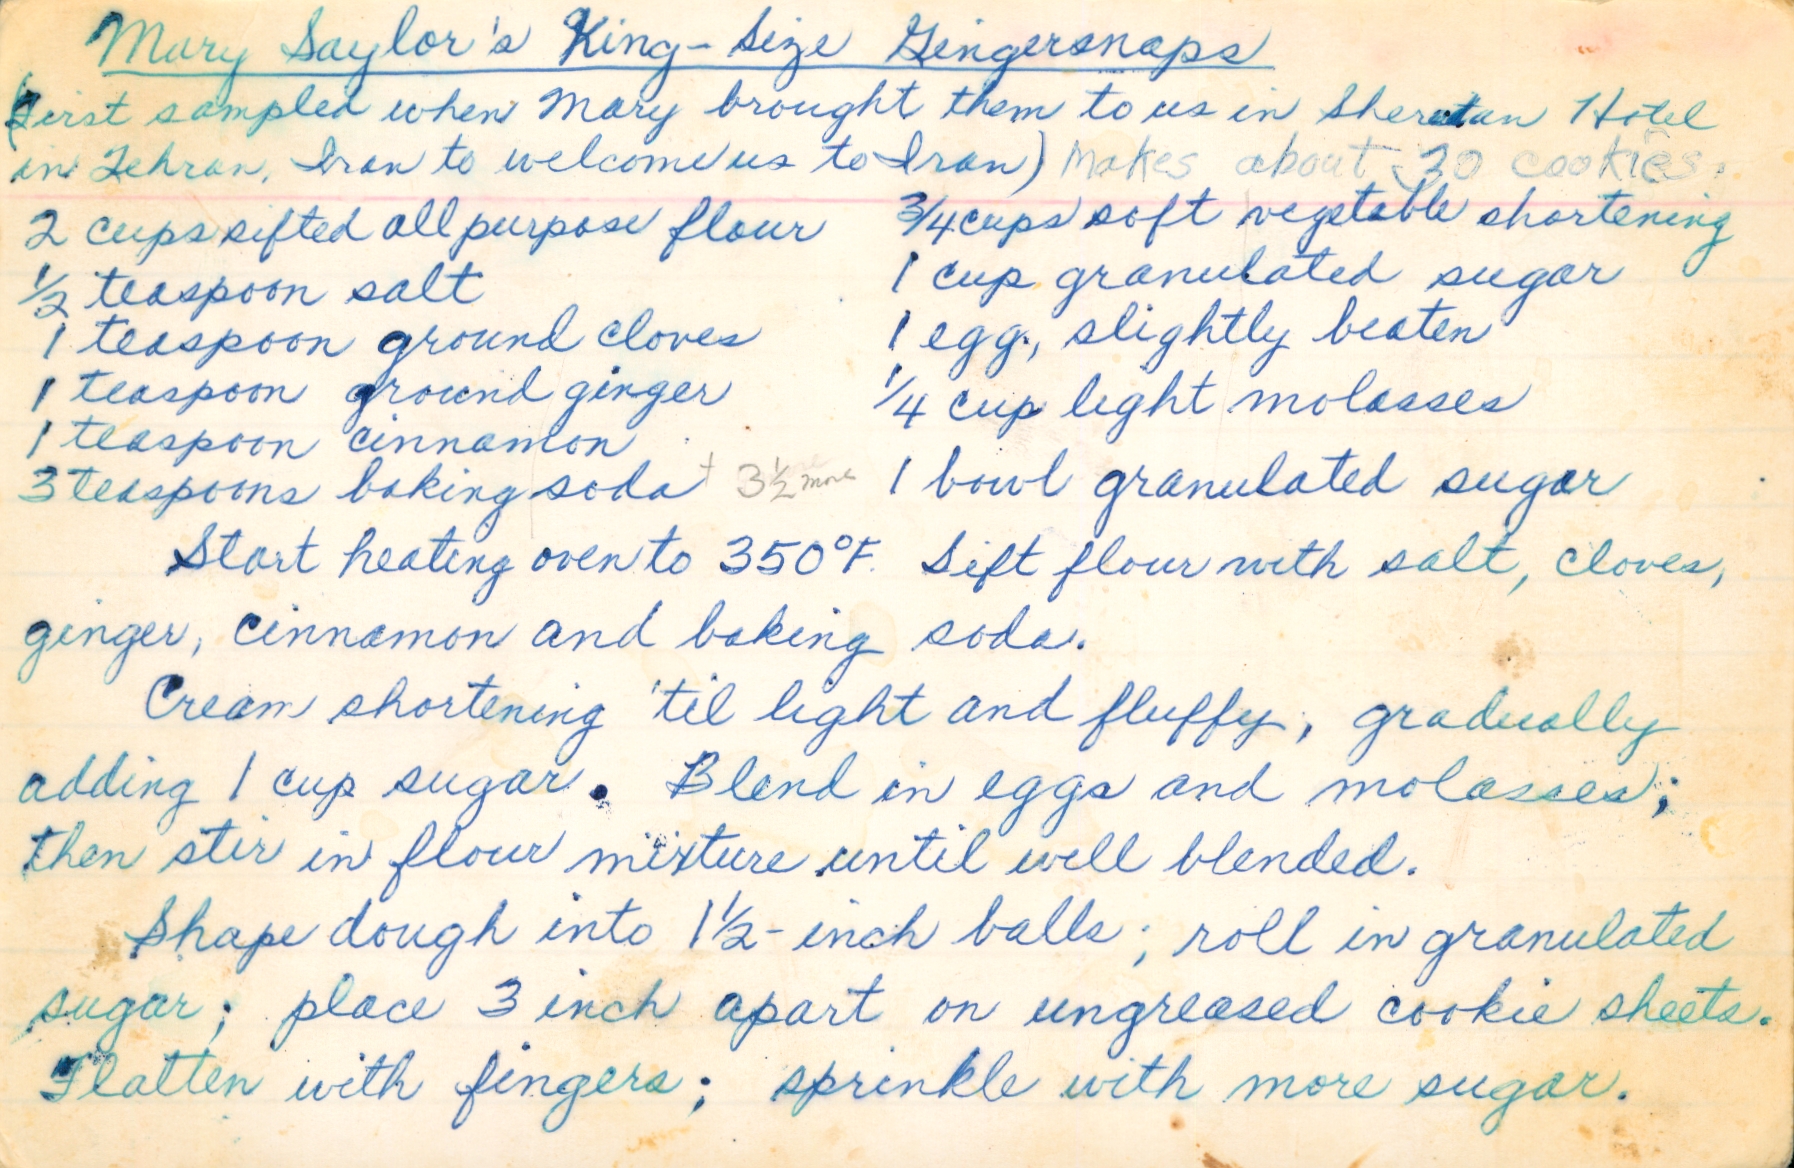 Mary Saylor's King-Size Gingersnaps
(First sampled when Mary brought them to us in Sheraton Hotel
in Tehran, Iran to welcome us to Iran) Makes about 30 cookies.
2 cups sifted all purpose flour
1/2 teaspoon salt
1 teaspoon ground cloves
1 teaspoon ground ginger
1 teaspoon cinnamon
3 teaspoons baking soda + 3 1/2 more
3/4 cups soft vegetable shortening
1 cup granulated sugar
1 egg, slightly beaten
1/4 cup light molasses
1 bowl granulated sugar
Start heating oven to 350°F. Sift flour with salt, cloves,
ginger, cinnamon and baking soda.
Cream shortening 'til light and fluffy, gradually
adding 1 cup sugar. Blend in eggs and molasses;
then stir in flour mixture until well blended.
Shape dough into 1 1/2-inch balls; roll in granulated
sugar; place 3 inch apart on ungreased cookie sheets.
Flatten with fingers; sprinkle with more sugar.